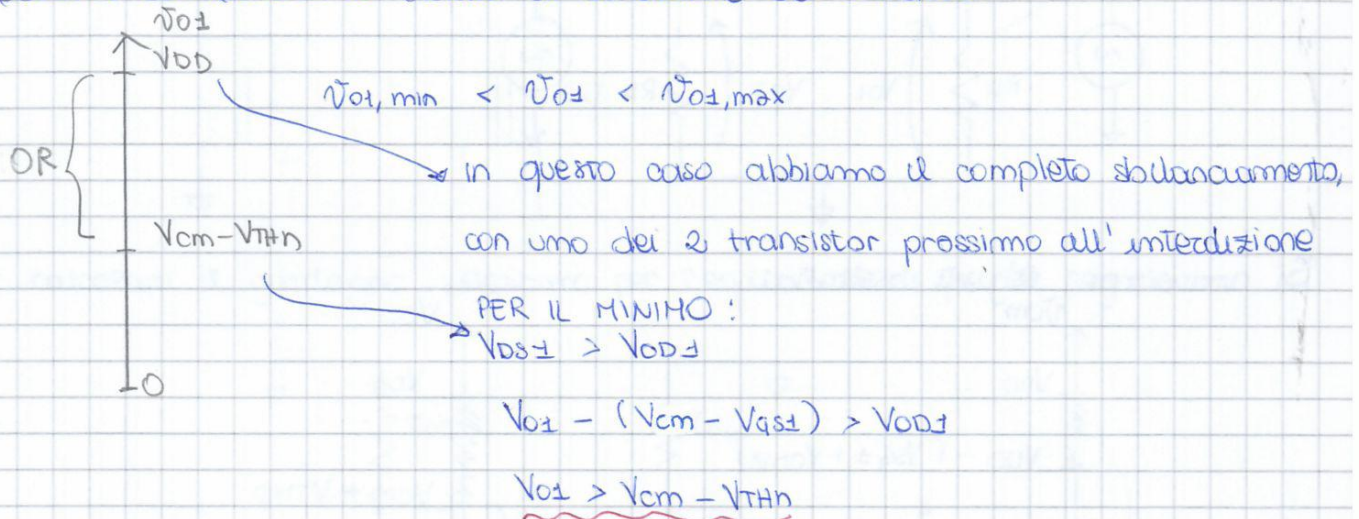 vO1
VDD
vO1, min < vO1 < vO1, max
OR
in questo caso abbiamo il completo sbilanciamento,
VCm-VTHn
con uno dei 2 transistor prossimo all'interdizione
PER IL MINIMO:
VDS1 > VOD1
0
VO1 - (VCm - VGS1) > VOD1
VO1 > VCm - VTHn